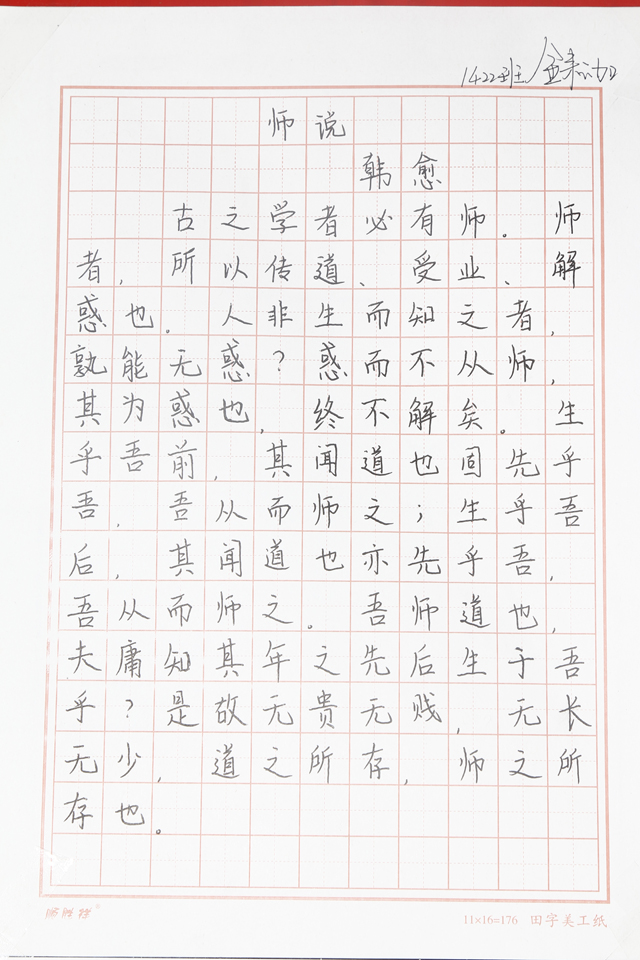 1422班
师说
韩愈
古之学者必有师。师
者,所以传道、受业、解
惑也。人非生而知之者,
孰能无惑?惑而不从师,
其为惑也,终不解矣。生
乎吾前,其闻道也固先乎
吾,吾从而师之;生乎吾
后,其闻道也亦先乎吾,
吾从而师之。吾师道也,
夫庸知其年之先后生于吾
乎?是故无贵无贱,无长
无少,道之所存,师之所
存也。
11×16=176 田字美工纸